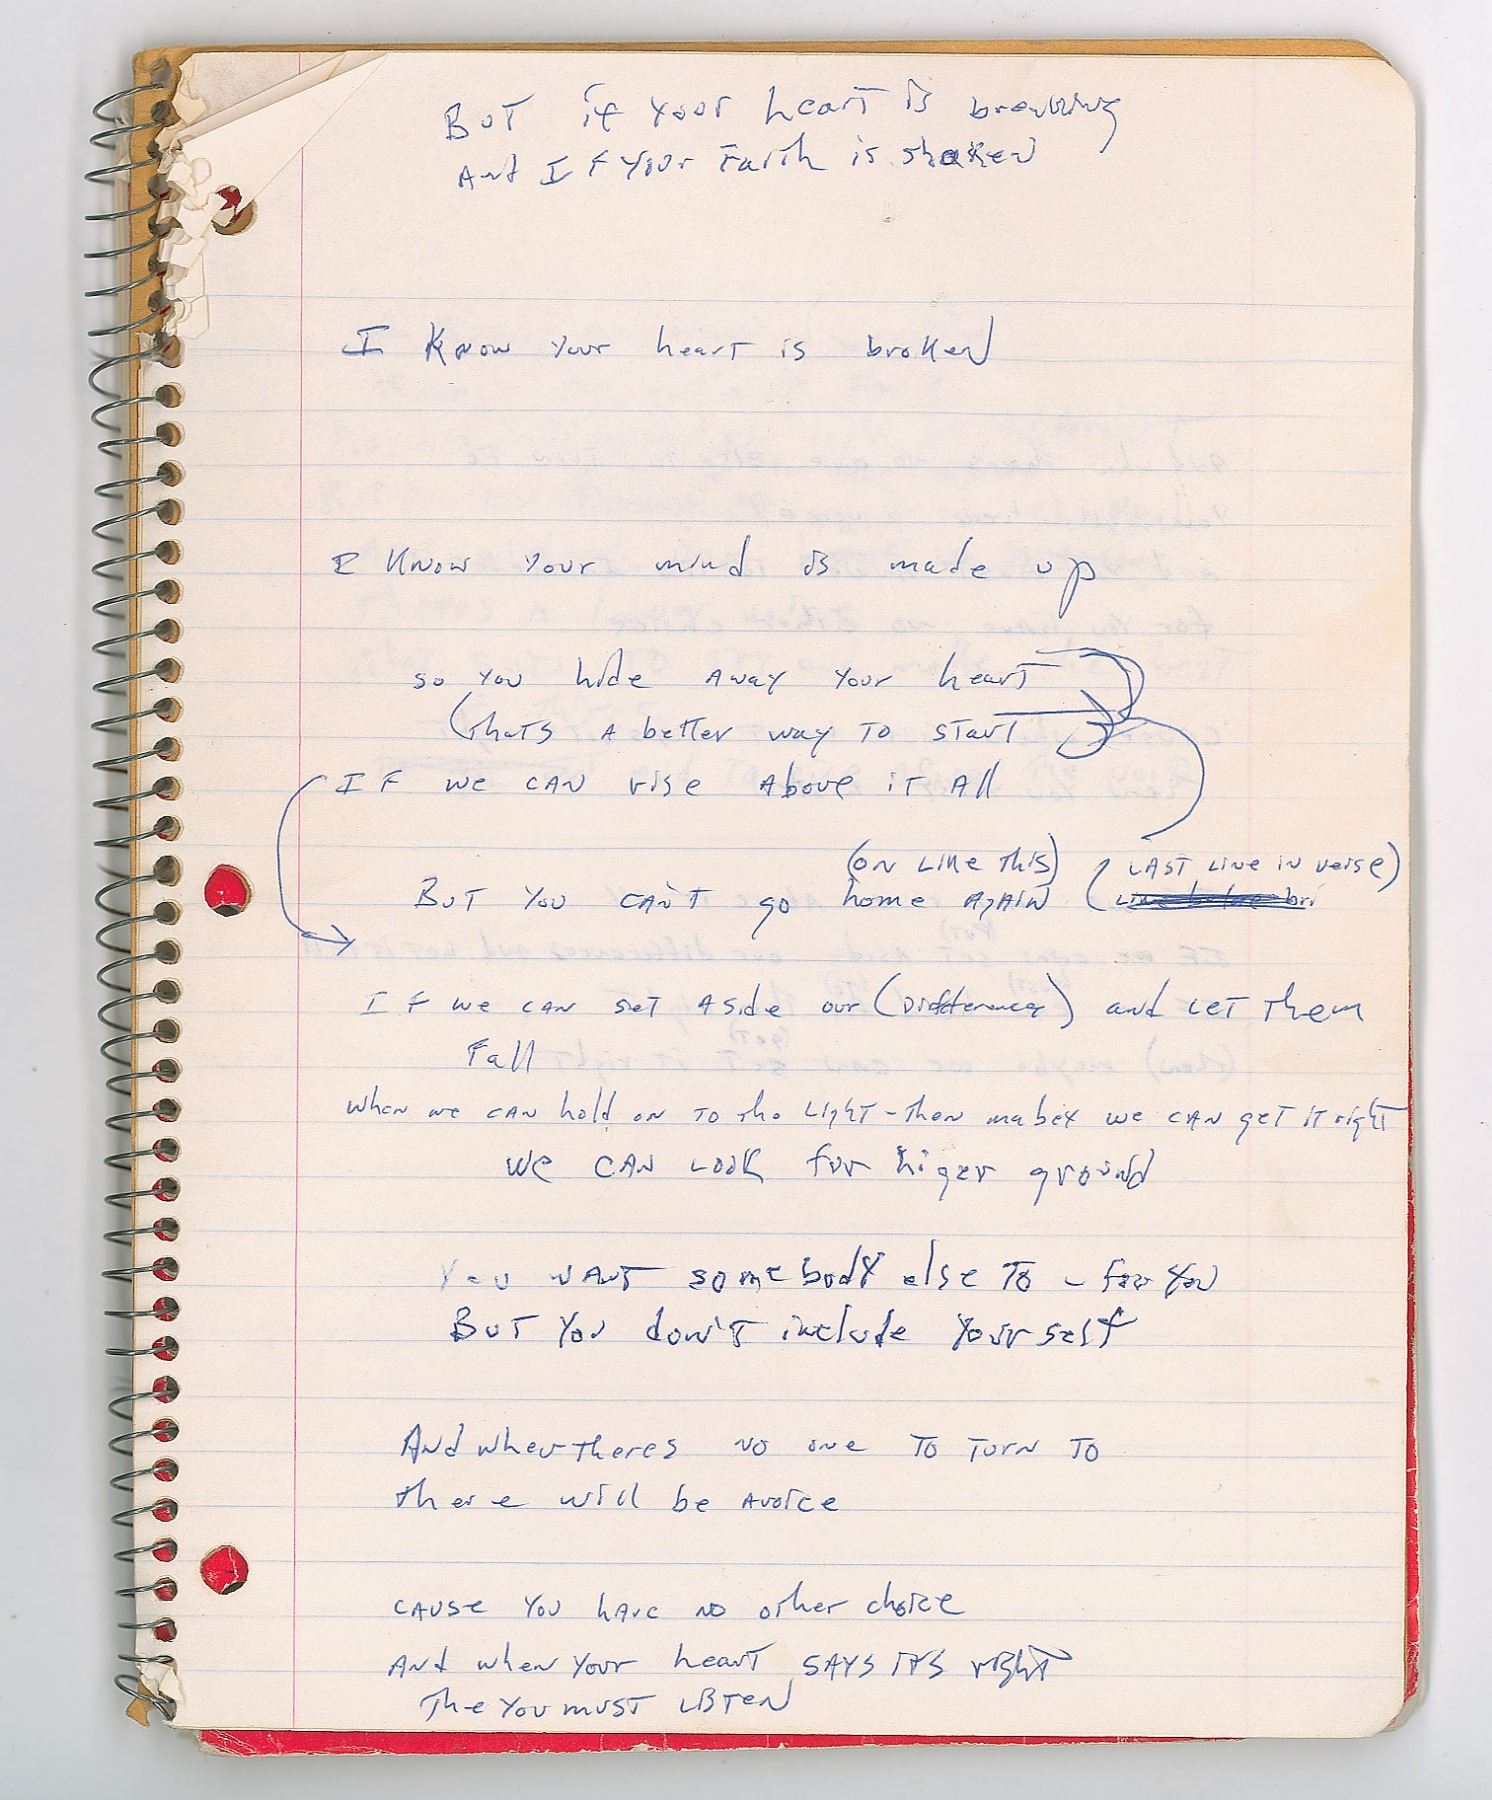 But if your heart is breaking
And If your Faith is shaken
I Know your heart is broken
I Know your mind is made up
so you hide away your heart
(thats a better way to start
If we can rise above it all
(on like this) (Last line in verse)
But you can't go home again (Line before bri
If we can set aside our (Differences) and let them
Fall
when we can hold on to the light - then mabey we can get it right
we can look for higer ground
You want somebody else to - for you
But you don't include yourself
And when theres no one to turn to
there will be avoice
cause you have no other choice
And when your heart says its right
The you must listen